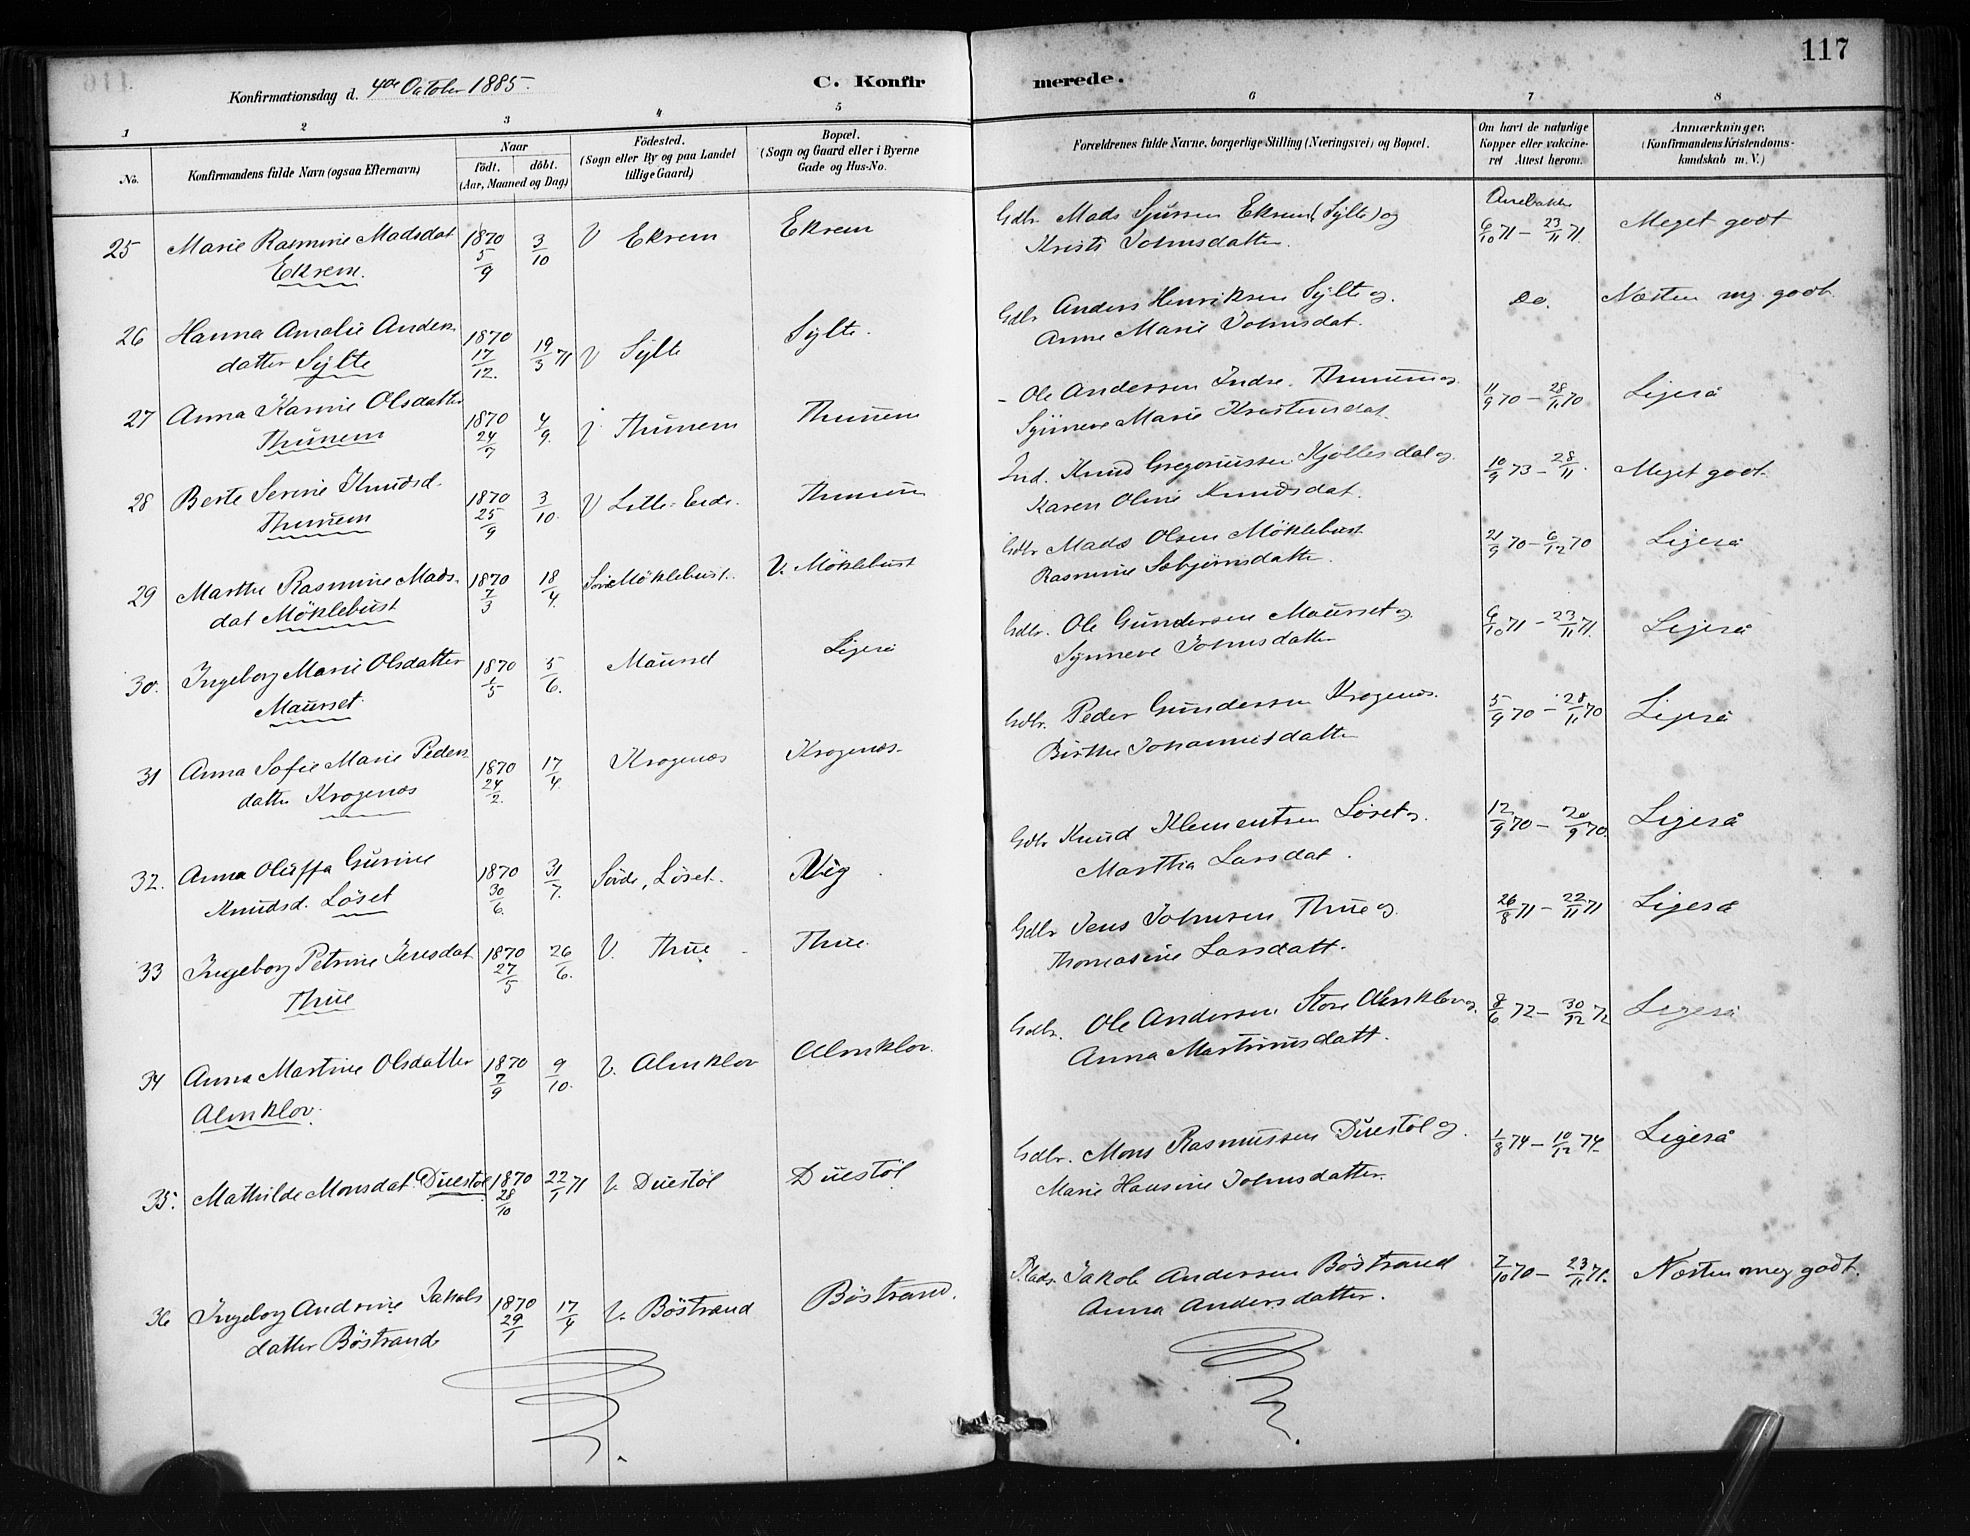 117
Konfirmationsdag d. 4de October 1885.
C. Konfir
merede.
1 2 3 4 5 6 7 8
No.
Konfirmandens fulde Navn (ogsaa Efternavn)
Naar
födt. döbt.
(Aar, Maaned og Dag)
Födested.
(Sogn eller By og paa Landet
tillige Gaard)
Bopæl.
(Sogn og Gaard eller i Byerne
Gade og Hus-No.
Forældrenes fulde Navne, borgerlige Stilling (Næringsvei) og Bopæl.
Om havt de naturlige
Kopper eller vakcine-
ret Attest herom.
Anmærkninger.
(Konfirmandens Kristendoms-
kundskab m. V.)
25 Marie Rasmine Madsdat 1870 3/10 V Ekrem Ekrem Gdbr. Mads Sjursen Ekrem (Sylte) og 6/10 71 – 23/11 71 Meget godt
Ekrem. 5/9 Johnsdatter.
26 Hanna Amalie Anders 1870 19/3 71 V Sylte Sylte. Gdbr Anders Henriksen Sylte og Do. Næsten mg. godt.
datter Sylte 17/12. Anne Marie Johnsdat.
27 Anna Karine Olsdatter 1870 4/9. Thunem Thunem – Ole Andersen Indre Thunem og 11/9 70 – 28/11 70 Ligeså
Thunem 24/7 Synneve Marie Kristensdat.
28 Berte Serine Knudsd. 1870 3/10. V Lille-Eide. Thunem Ind. Knud Gregoriussen Kjøllesdal og 10/9 73 – 28/11. Meget godt.
Thunem 25/9 Karen Oline Knudsdat.
29 Marthe Rasmine Mads- 1870 18/4. Möklebust. V. Möklebust Gdbr Mads Olsen Möklebust 21/9 70 – 6/12 70 Ligeså
dat Möklebust 7/3 Rasmine datter.
30. Ingeborg Marie Olsdatter 1870 5/6. Maurset Ligeså Gdbr. Ole Gundersen Maurset og 6/10 71 – 23/11 71. Ligeså
Maurset. 1/5 Synneve Johnsdatter
31 Anna Sofie Marie Peders 1870 17/4. Krogenæs Krogenæs. Gdbr. Peder Gundersen Krogenæs. 5/9 70 – 28/11 70 Ligeså
datter Krogenæs 24/2. Birthe Johannesdatter
32. Anna Oluffa Gurine 1870 31/7. Søvde, Löset. Vig. Gdbr Knud Klementsen Löset og. 12/9 70 – 20/9 70 Ligeså
Knudsd. Löset 30/6. Martha Larsdat.
33 Ingeborg Petrine Jensdat 1870 26/6. V. Thue Thue. Gdbr Jens Johnsen Thue og. 26/8 71 – 22/11 71 Ligeså
Thue 27/5 Thomasine Larsdatt.
34 Anna Martine Olsdatter 1870 9/10. V. Almklov Almklov. Gdbr. Ole Andersen Store Almklov og. 8/6 72 – 30/12 72 Ligeså
Almklov. 7/9 Anna Martinusdatt.
35. Mathilde Monsdat. Duestöl 1870 22/1 71 V. Duestöl Duestöl Gdbr. Mons Rasmussen Duestöl og. 1/8 74 – 10/12 74. Ligeså
28/10 Marie Hansine Johnsdatter.
36 Ingeborg Andrine Jakobs 1870 17/4 V. Böstrand Böstrand. Plads. Jakob Andersen Böstrand 7/10 70 – 23/11 71. Næsten meg godt.
datter Böstrande 29/1 Anna Andersdatter.